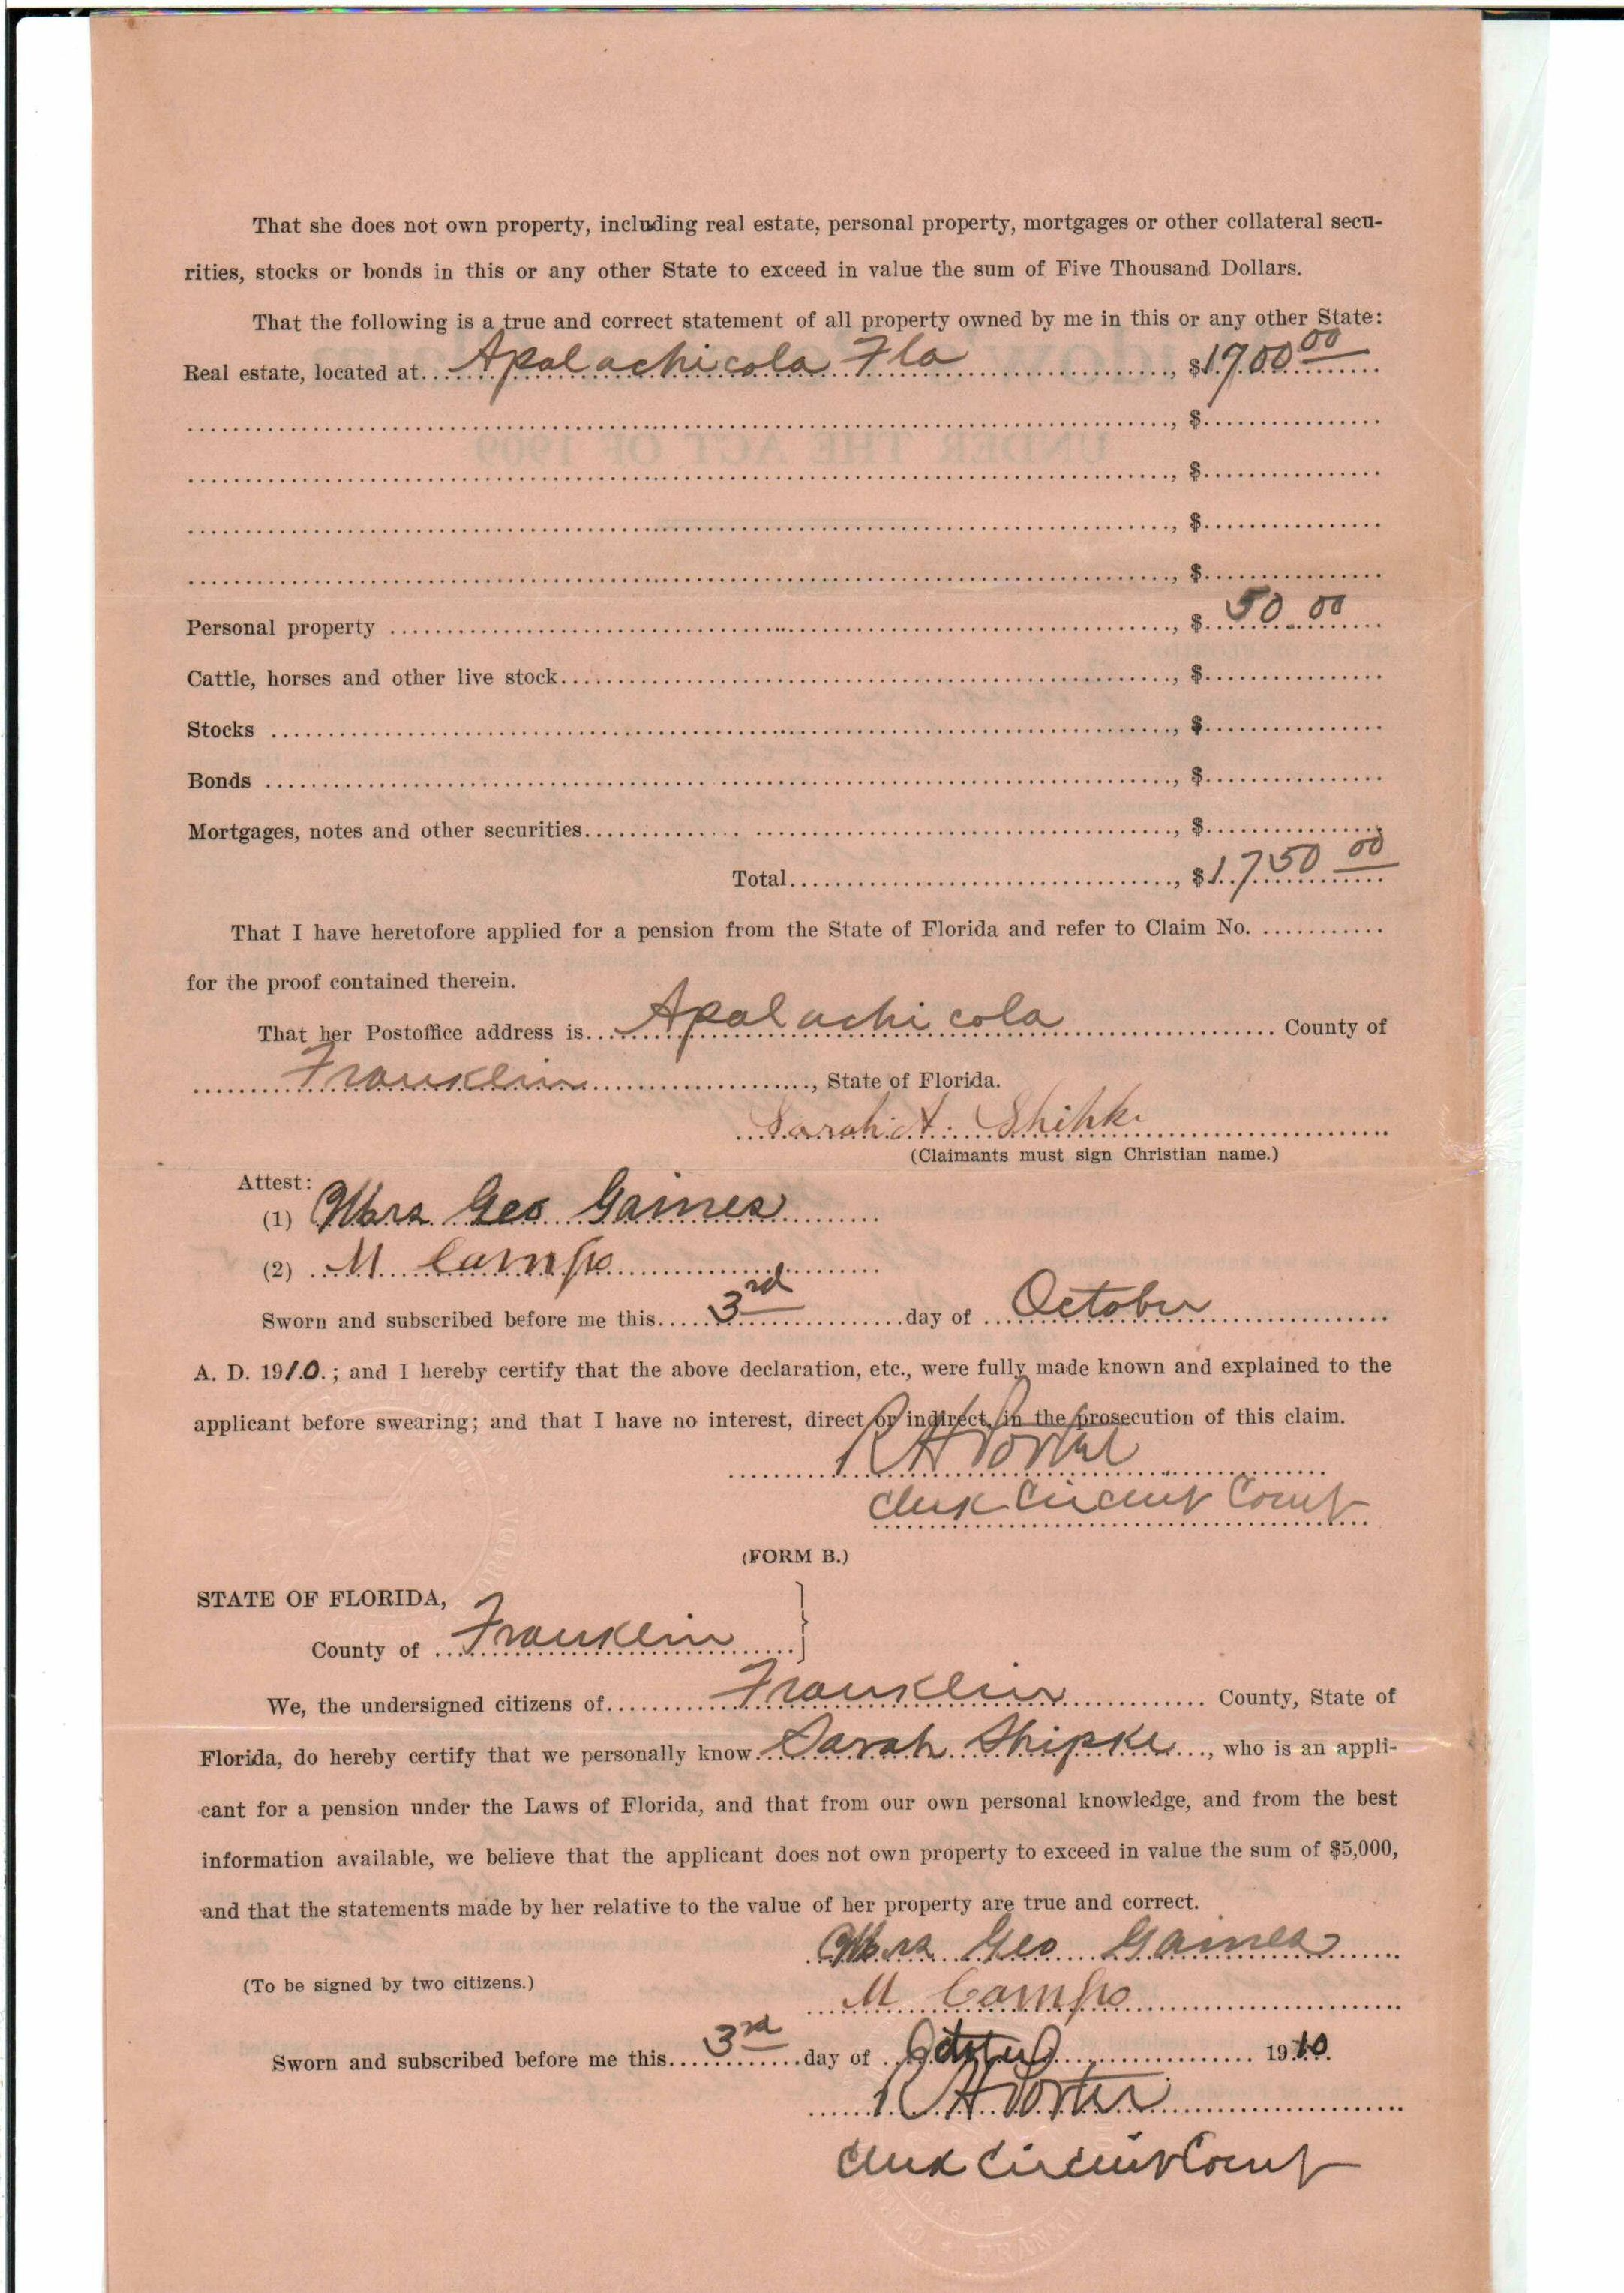 That she does not own property, including real estate, personal property, mortgages or other collateral secu-
rities, stocks or bonds in this or any other State to exceed in value the sum of Five Thousand Dollars.
That the following is a true and correct statement of all property owned by me in this or any other State:
Real estate, located at Apalachicola Fla, $1700 00
, $
, $
, $
, $
Personal property, $ 50.00
Cattle, horses and other live stock, $
Stocks, $
Bonds, $
Mortgages, notes and other securities, $
Total, $1750 00
That I have heretofore applied for a pension from the State of Florida and refer to Claim No.
for the proof contained therein.
That her Postoffice address is Apalachicola County of
Franklin, State of Florida.
Sarah A. Shipke
(Claimants must sign Christian name.)
Attest:
(1) Mrs Geo Gaines
(2) M Camps
Sworn and subscribed before me this 3rd day of October
A. D. 1910.; and I hereby certify that the above declaration, etc., were fully made known and explained to the
applicant before swearing; and that I have no interest, direct or indirect, in the prosecution of this claim.
R H Porter
Clerk Circuit Court
(FORM B.)
STATE OF FLORIDA,
County of Franklin
We, the undersigned citizens of Franklin County, State of
Florida, do hereby certify that we personally know Sarah Shipke, who is an appli-
cant for a pension under the Laws of Florida, and that from our own personal knowledge, and from the best
information available, we believe that the applicant does not own property to exceed in value the sum of $5,000,
and that the statements made by her relative to the value of her property are true and correct.
Mrs Geo Gaines
(To be signed by two citizens.)
M Camps
Sworn and subscribed before me this 3rd day of October 1910.
R H Porter
Clerk Circuit Court